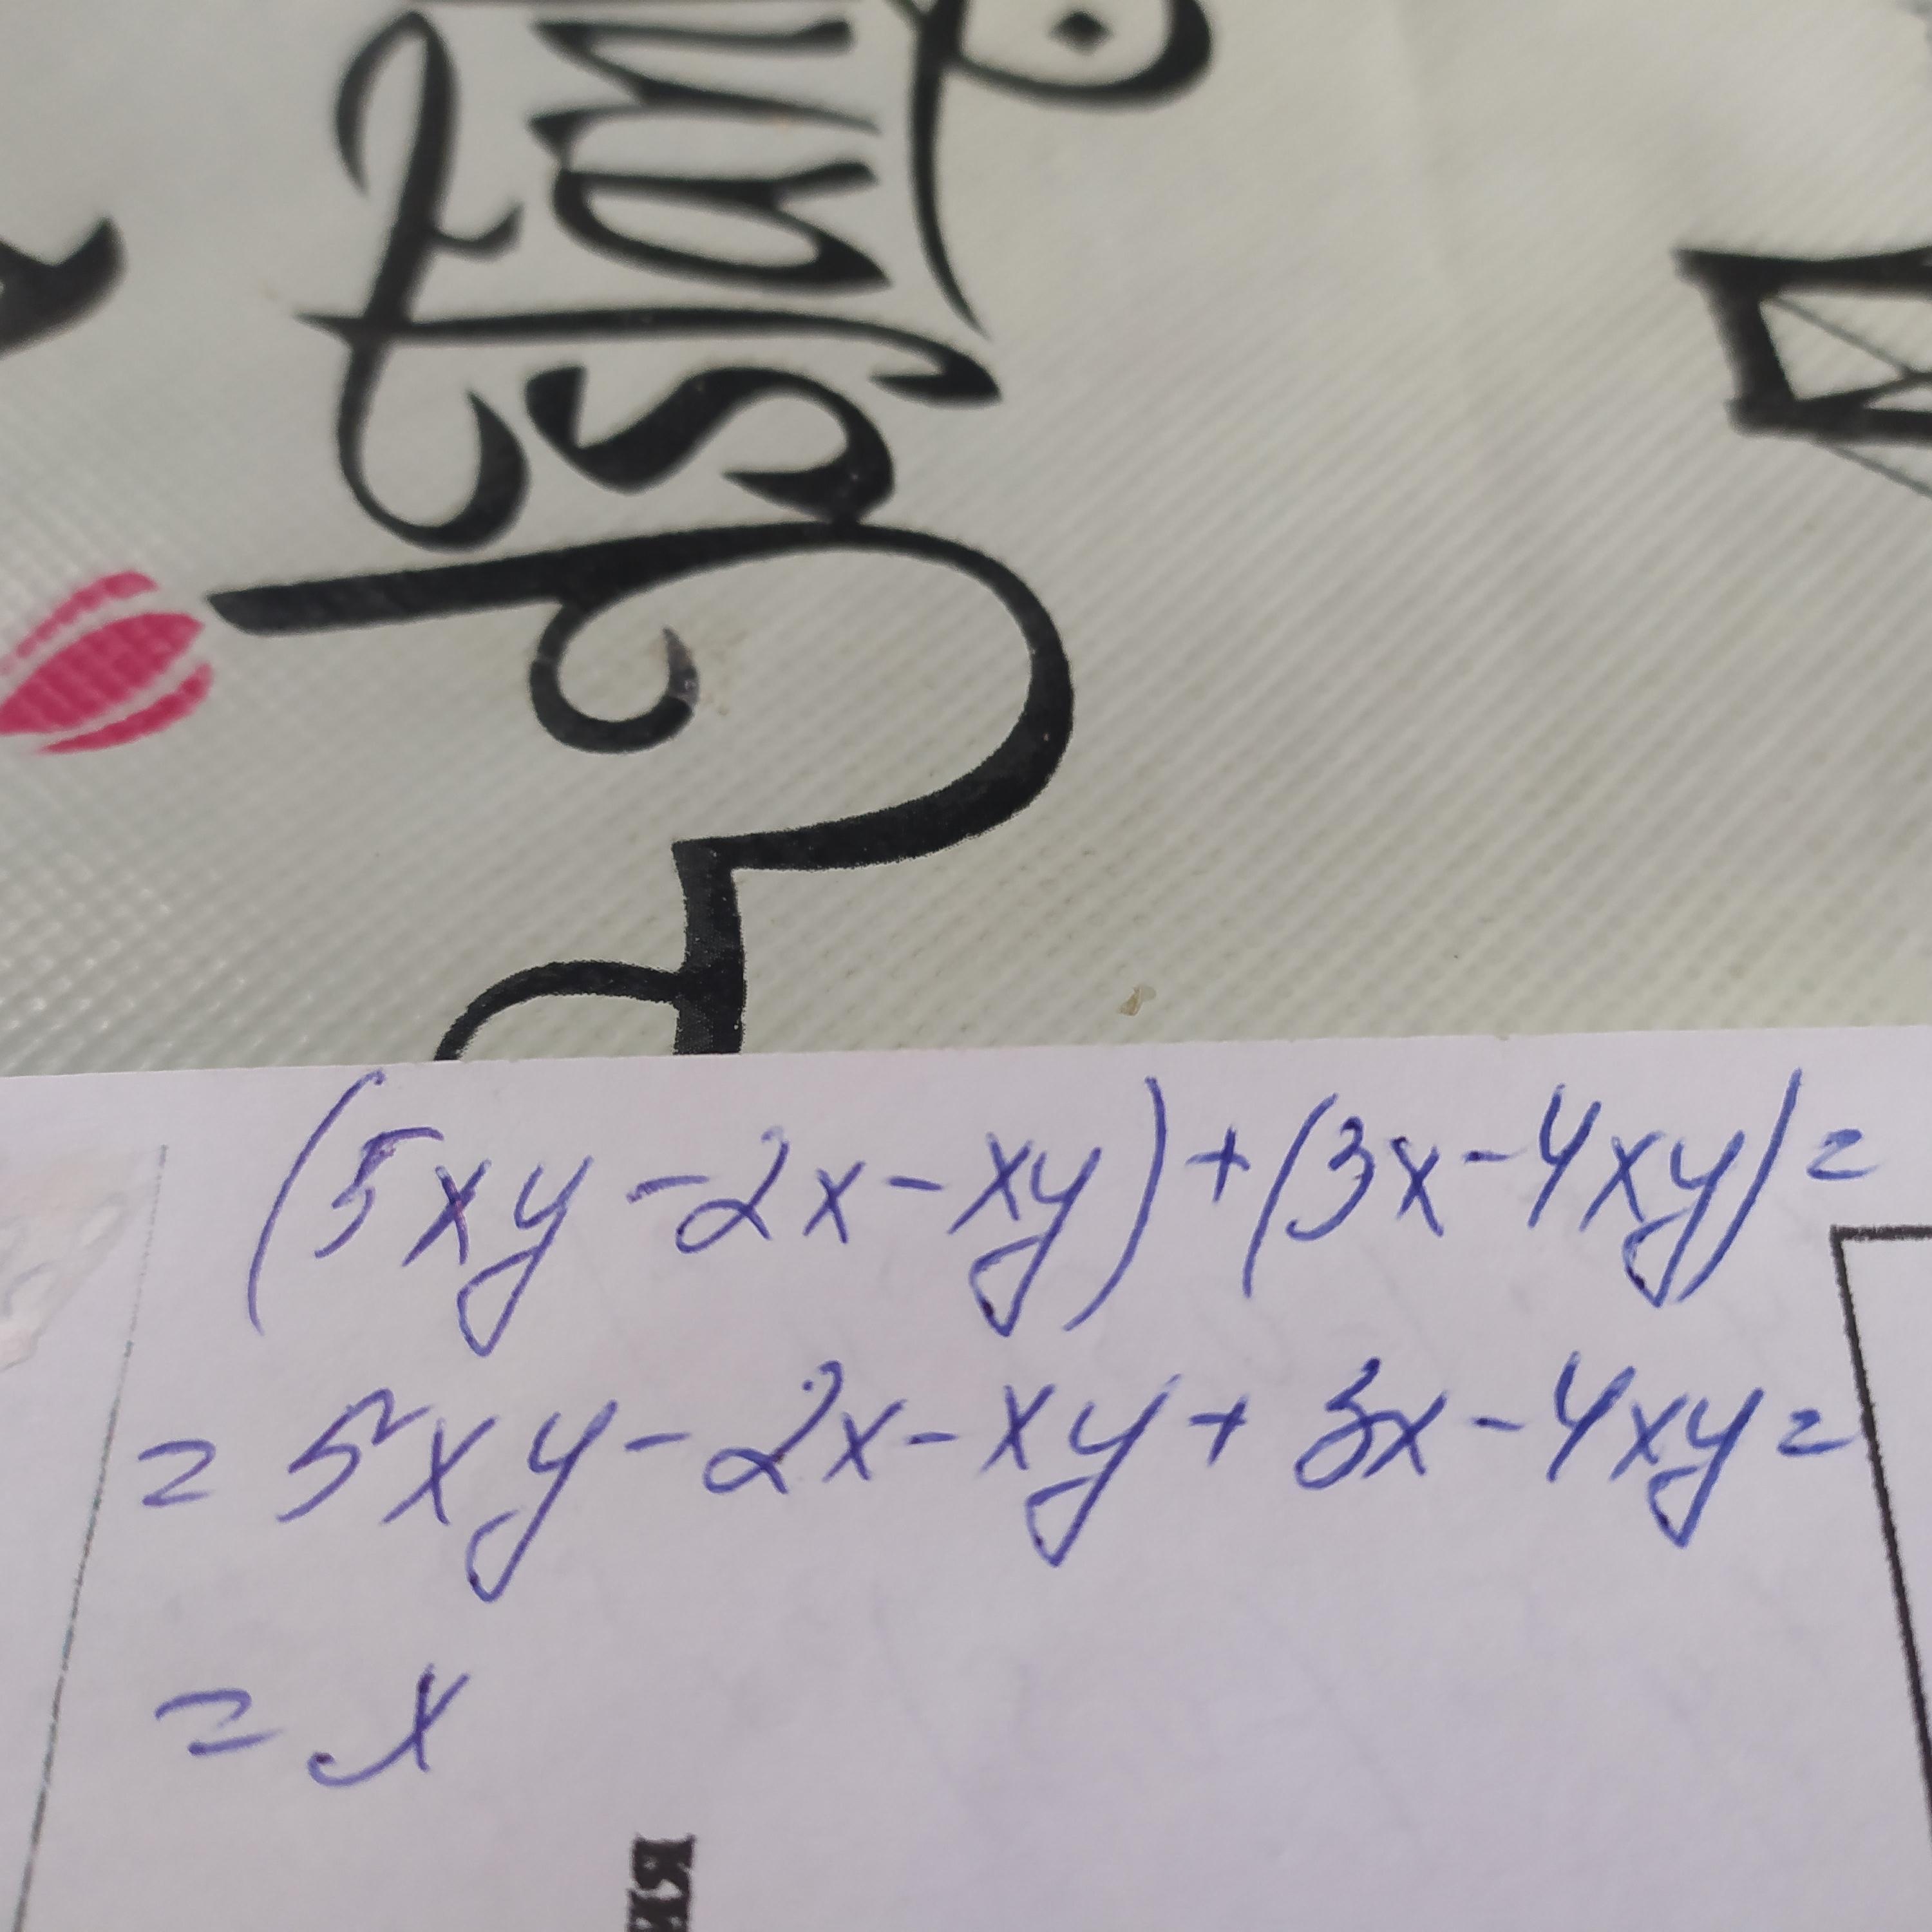 (5xy-2x-xy)+(3x-4xy)=
=5xy-2x-xy+3x-4xy=
=x